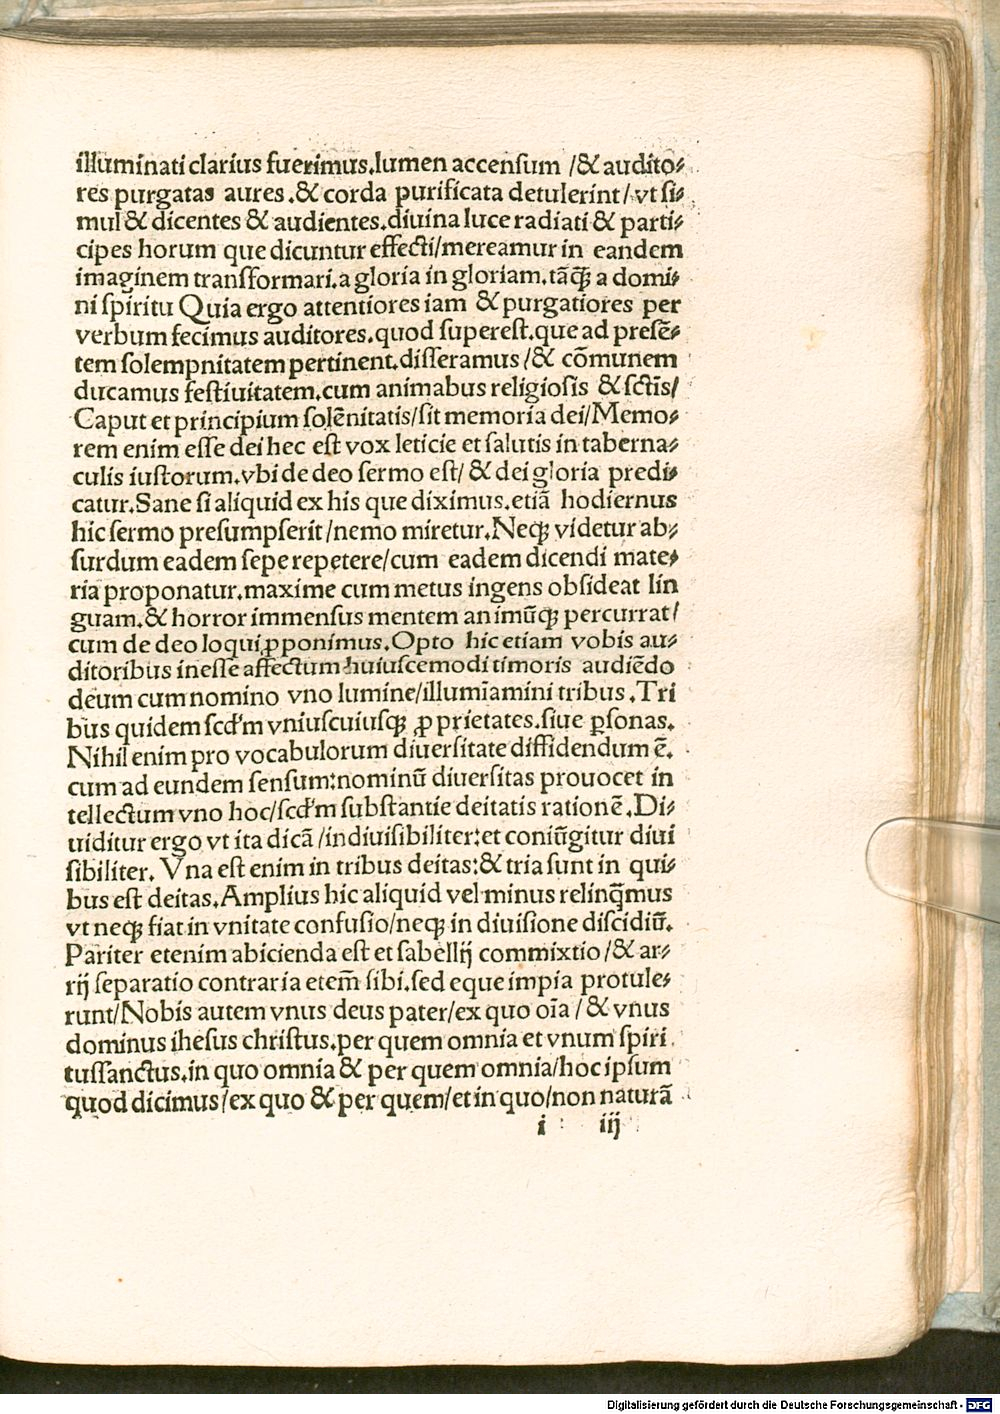 illuminati clarius fuerimus.lumen accensum /& audito⸗
res purgatas aures .& corda purificata detulerint/ vt si⸗
mul & dicentes & audientes.diuina luce radiati & parti⸗
cipes horum que dicuntur effecti/mereamur in eandem
imaginem transformari.a gloria in gloriam.tãqꝫ a domi⸗
ni spiritu Quia ergo attentiores iam & purgatiores per
verbum fecimus auditores.quod superest.que ad presẽ⸗
tem solempnitatem pertinent.disseramus /& cõmunem
ducamus festiuitatem.cum animabus religiosis & sctis̃/
Caput et principium solẽnitatis/sit memoria dei/Memo⸗
rem enim esse dei hec est vox leticie et salutis in taberna⸗
culis iustorum.vbi de deo sermo est/ & dei gloria predi⸗
catur.Sane si aliquid ex his que diximus.etiã hodiernus
hic sermo presumpserit/nemo miretur.Neqꝫ videtur ab⸗
surdum eadem sepe repetere/cum eadem dicendi mate⸗
ria proponatur.maxime cum metus ingens obsideat lin
guam.& horror immensus mentem animũqꝫ percurrat/
cum de deo loqui ꝓponimus.Opto hic etiam vobis au⸗
ditoribus inesse affectum huiuscemodi timoris audiẽdo
deum cum nomino vno lumine/illumĩamini tribus .Tri
bus quidem scd'm vniuscuiusqꝫ ꝓprietates.siue ꝑsonas.
Nihil enim pro vocabulorum diuersitate diffidendum ẽ.
cum ad eundem sensum:nominũ diuersitas prouocet in
tellectum vno hoc/scd'm substantie deitatis rationẽ .Di⸗
uiditur ergo vt ita dicã /indiuisibiliter:et coniũgitur diui
sibiliter. Vna est enim in tribus deitas:& tria sunt in qui⸗
bus est deitas.Amplius hic aliquid vel minus relinq̃mus
vt neqꝫ fiat in vnitate confusio/neqꝫ in diuisione discidiũ.
Pariter etenim abicienda est et sabellij commixtio /& ar⸗
rij separatio contraria etem̃ sibi.sed eque impia protule⸗
runt/Nobis autem vnus deus pater/ex quo oĩa / & vnus
dominus ihesus christus.per quem omnia et vnum spiri
tussanctus.in quo omnia & per quem omnia/hoc ipsum
quod dicimus/ex quo & per quem/et in quo/non naturã
i iij
Digitalisierung gefördert durch die Deutsche Forschungsgemeinschaft - DFG